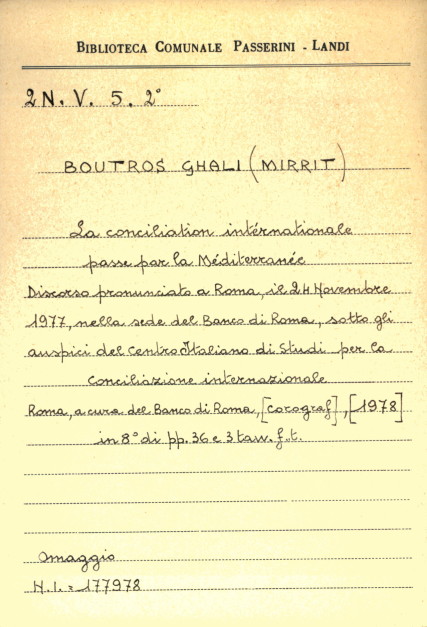 BIBLIOTECA COMUNALE PASSERINI - LANDI
2 N. V. 5. 2°
BOUTROS GHALI (MIRRIT)
La conciliation intérnationale
passe par la Méditerranée
Discorso pronunciato a Roma, il 24 Novembre
1977, nella sede del Banco di Roma, sotto gli
auspici del Centro Italiano di Studi per la
conciliazione internazionale
Roma, a cura del Banco di Roma, [Corograf], [1978]
in 8° di pp. 36 e 3 tavv. f.t.
Omaggio
N.I. = 177978